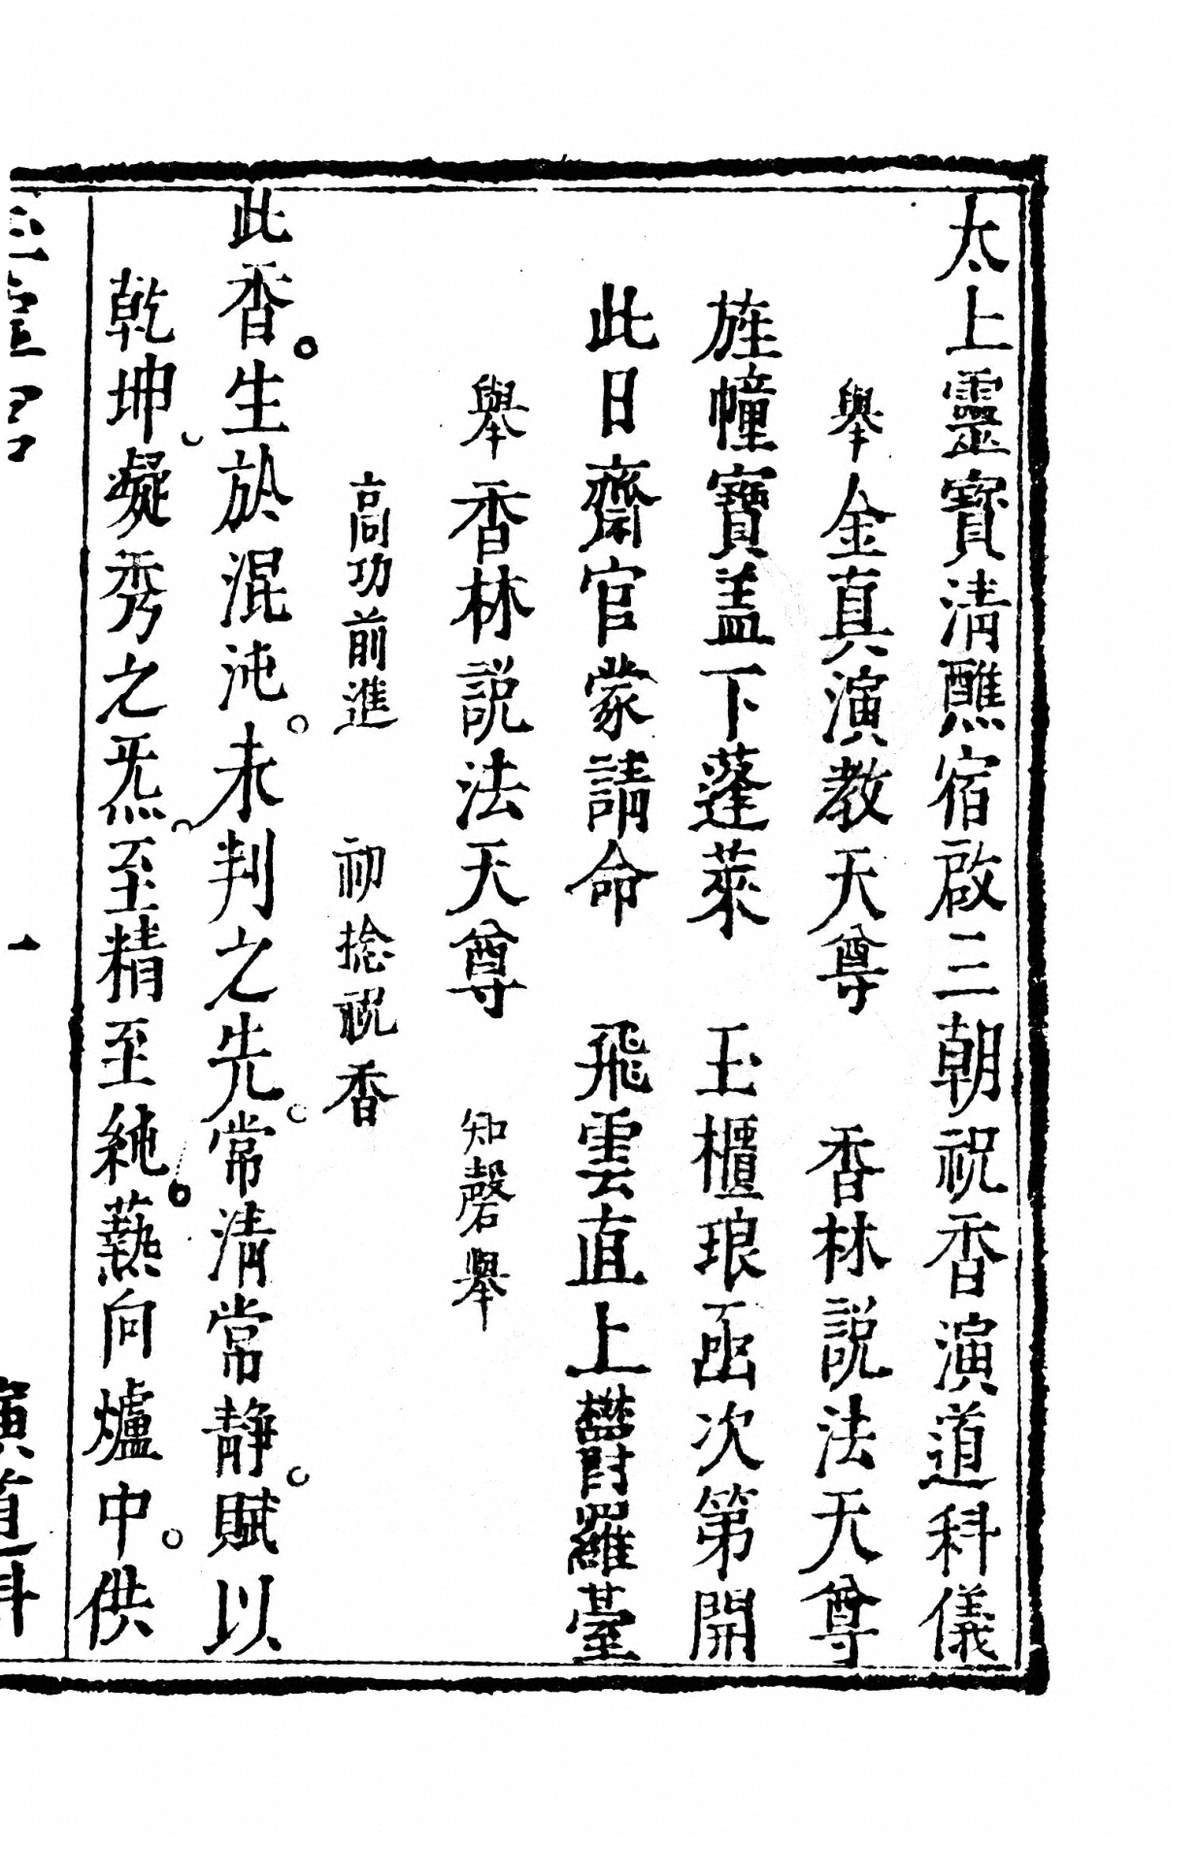 太上靈寳清醮宿啟三朝祝香演道科儀
舉金真演教天尊　香林説法天尊
旌幢寶盖下蓬萊　玉櫃琅函次第開
此日齋官蒙請命　飛雲直上欝罸羅臺
舉香林説法天尊　知磬舉
高功前進　初捻祝香
此香。生於混沌。未判之先。常清常静。賦以
乾坤。凝秀之炁。至精至純。爇向爐中。供